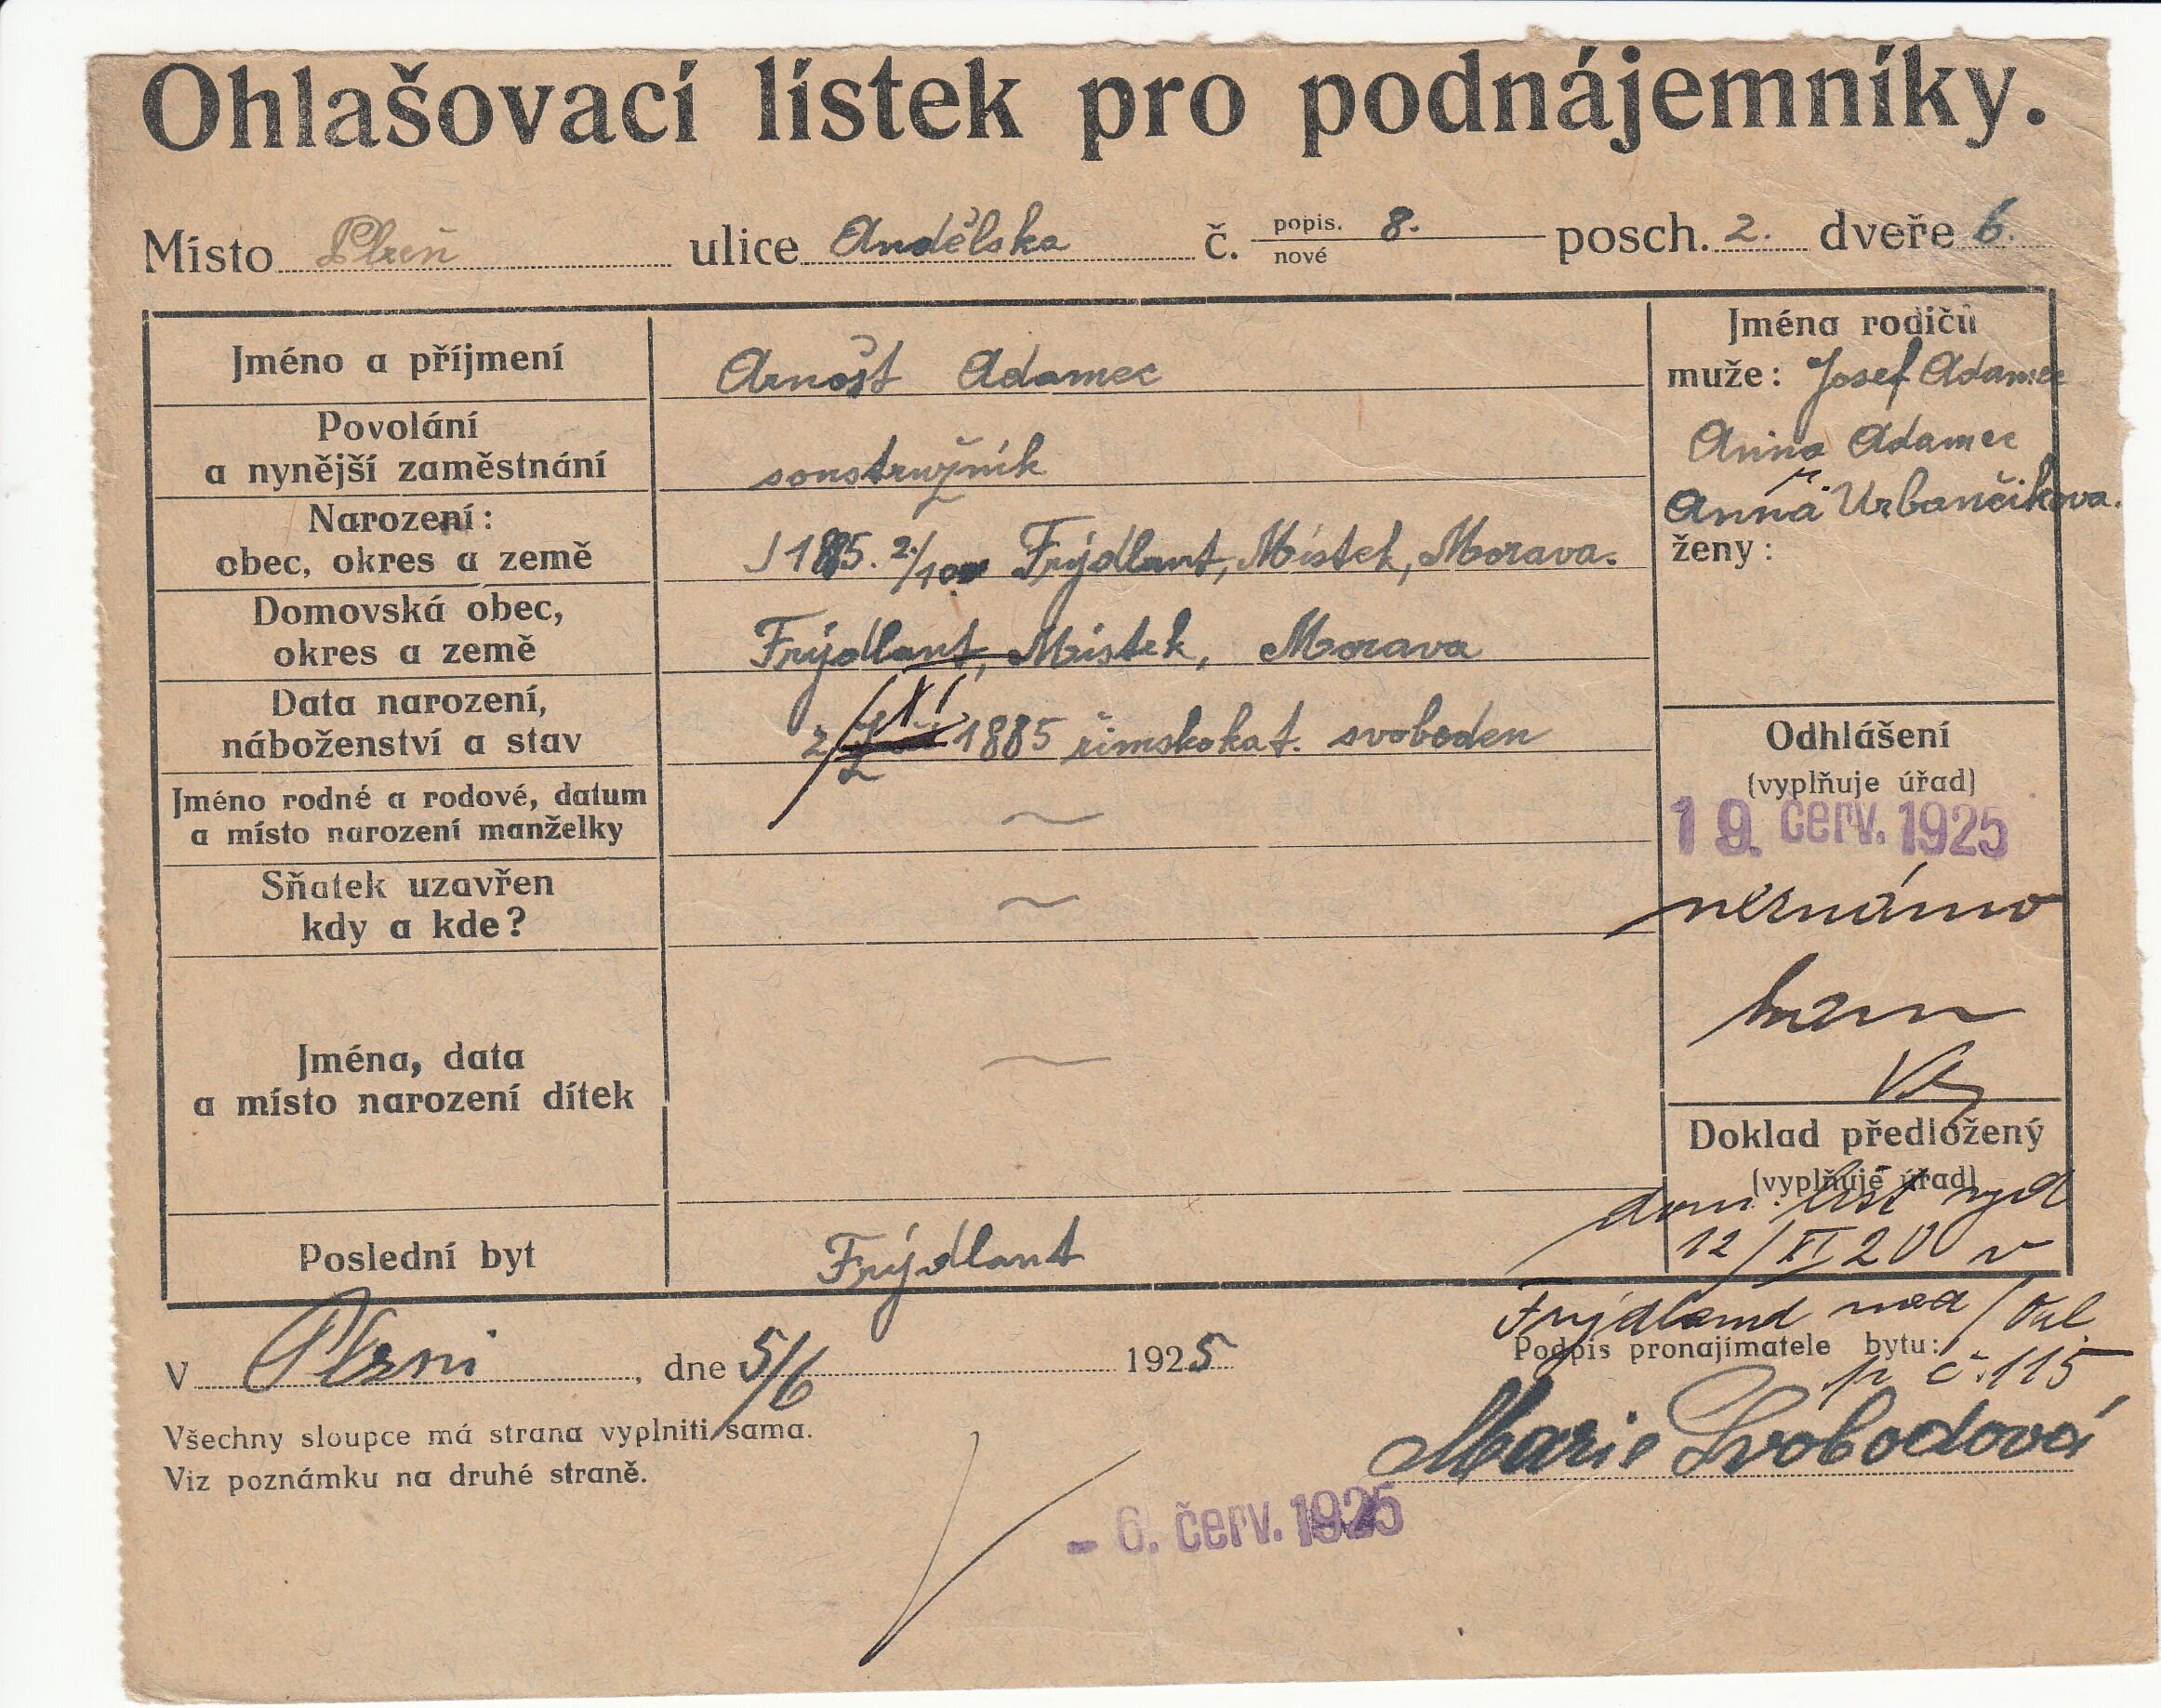 Ohlašovací lístek pro podnájemníky.
Místo Plzeň ulice Andělska č. popis. 8. nové posch. 2. dveře 6.
Jméno a příjmení
Arnošt Adamec
Povolání
a nynější zaměstnání
soustružnik
Narození:
obec, okres a země
1885. 2/10 Frýdlant, Místek, Morava.
Domovská obec,
okres a země
Frýdlant, Místek, Morava
Data narození,
náboženství a stav
2/XI 1885 řimskokat. svoboden
Jméno rodné a rodové, datum
a místo narození manželky
Sňatek uzavřen
kdy a kde?
Jména, data
a místo narození dítek
Poslední byt
Frýdlant
Jména rodičů
muže: Josef Adamec
Anna Adamec
Anna Urbančikova.
ženy:
Odhlášení
(vyplňuje úřad)
19. červ. 1925
neznámo
kam
Doklad předložený
(vyplňuje úřad)
dom. list vyd
12/VI 20 v
Frýdland nad/
č. 115
V Plzni, dne 5/6 1925
Podpis pronajímatele bytu:
Marie Svobodová
Všechny sloupce má strana vyplniti sama.
Viz poznámku na druhé straně.
- 6. červ. 1925